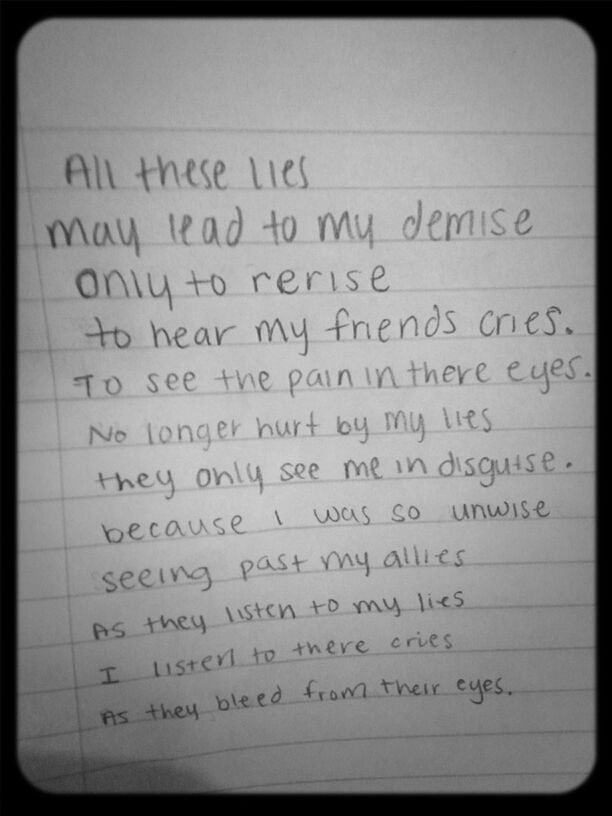 All these lies
may lead to my demise
only to rerise
to hear my friends cries.
To see the pain in there eyes.
No longer hurt by my lies
they only see me in disguise.
because i was so unwise
seeing past my allies
As they listen to my lies
I listen to there cries
As they bleed from their eyes.